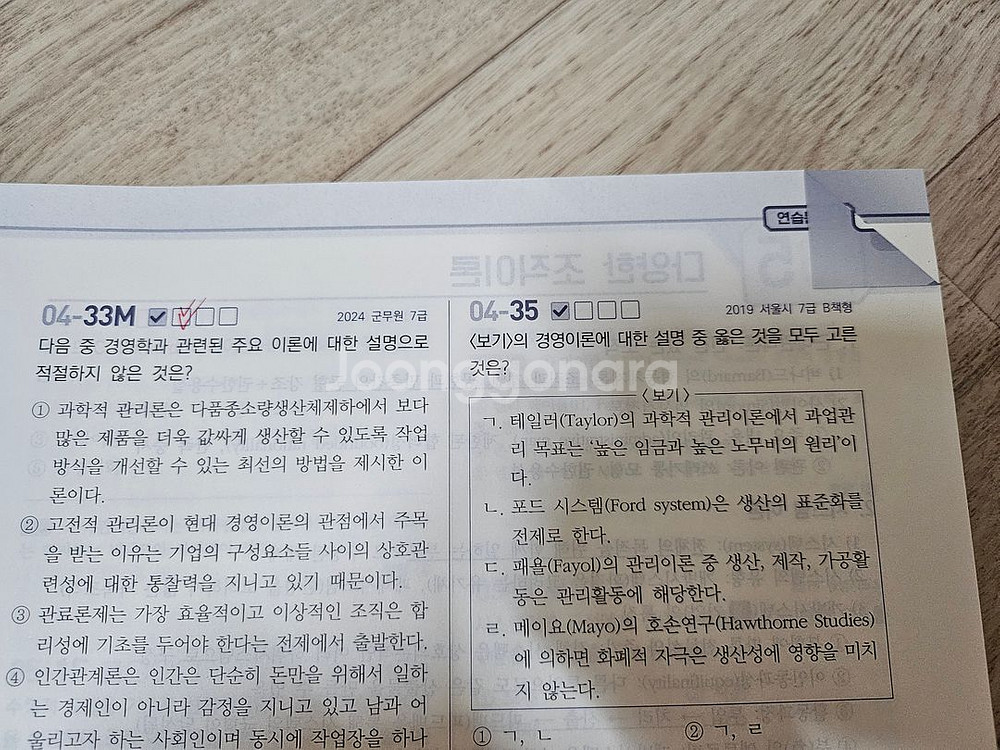 연습
다양한 조직이론
04-33M
2024 군무원 7급
다음 중 경영학과 관련된 주요 이론에 대한 설명으로
적절하지 않은 것은?
① 과학적 관리론은 다품종소량생산체제하에서 보다
많은 제품을 더욱 값싸게 생산할 수 있도록 작업
방식을 개선할 수 있는 최선의 방법을 제시한 이
론이다.
② 고전적 관리론이 현대 경영이론의 관점에서 주목
을 받는 이유는 기업의 구성요소들 사이의 상호관
련성에 대한 통찰력을 지니고 있기 때문이다.
③ 관료론제는 가장 효율적이고 이상적인 조직은 합
리성에 기초를 두어야 한다는 전제에서 출발한다.
④ 인간관계론은 인간은 단순히 돈만을 위해서 일하
는 경제인이 아니라 감정을 지니고 있고 남과 어
울리고자 하는 사회인이며 동시에 작업장을 하나
04-35
2019 서울시 7급 B책형
<보기>의 경영이론에 대한 설명 중 옳은 것을 모두 고른
것은?
<보기>
ㄱ. 테일러(Taylor)의 과학적 관리이론에서 과업관
리 목표는 '높은 임금과 높은 노무비의 원리'이
다.
ㄴ. 포드 시스템(Ford system)은 생산의 표준화를
전제로 한다.
ㄷ. 패욜(Fayol)의 관리이론 중 생산, 제작, 가공활
동은 관리활동에 해당한다.
ㄹ. 메이요(Mayo)의 호손연구(Hawthorne Studies)
에 의하면 화폐적 자극은 생산성에 영향을 미치
지 않는다.
① ㄱ, ㄴ
② ㄱ, ㄹ
Joonggonara